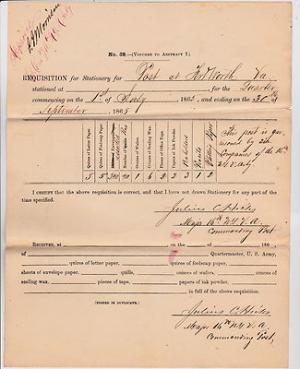 No. 52.—(VOUCHER TO ABSTRACT
REQUISITION for Stationery for Post at Fort Worth Va
stationed at for the Quarter
commencing on the 1st of July 1865, and ending on the 30th
September 1865
Quires of Letter Paper.
Quires of Foolscap Paper.
Quires of Wafers.
Ounces of Sealing Wax.
Pieces of Office Tape.
Papers of Ink Powder.
the post is gar
by
Companies of the 16th
N.Y. Arty.
I CERTIFY that the above requisition is correct, and that I have not drawn Stationery for any part of the
time specified.
Julius C. Hicks
Major 16th N.Y.V.A.
Commanding Post
RECEIVED, at on the of 186 ,
of Quartermaster, U. S. Army,
quires of letter paper, quires of foolscap paper,
sheets of envelope paper, quills, ounces of wafers, ounces of
sealing wax, pieces of tape, papers of ink powder,
in full of the above requisition.
[SIGNED IN DUPLICATE.]
Julius C. Hicks
Major 16th N.Y.V.A.
Commanding Post,